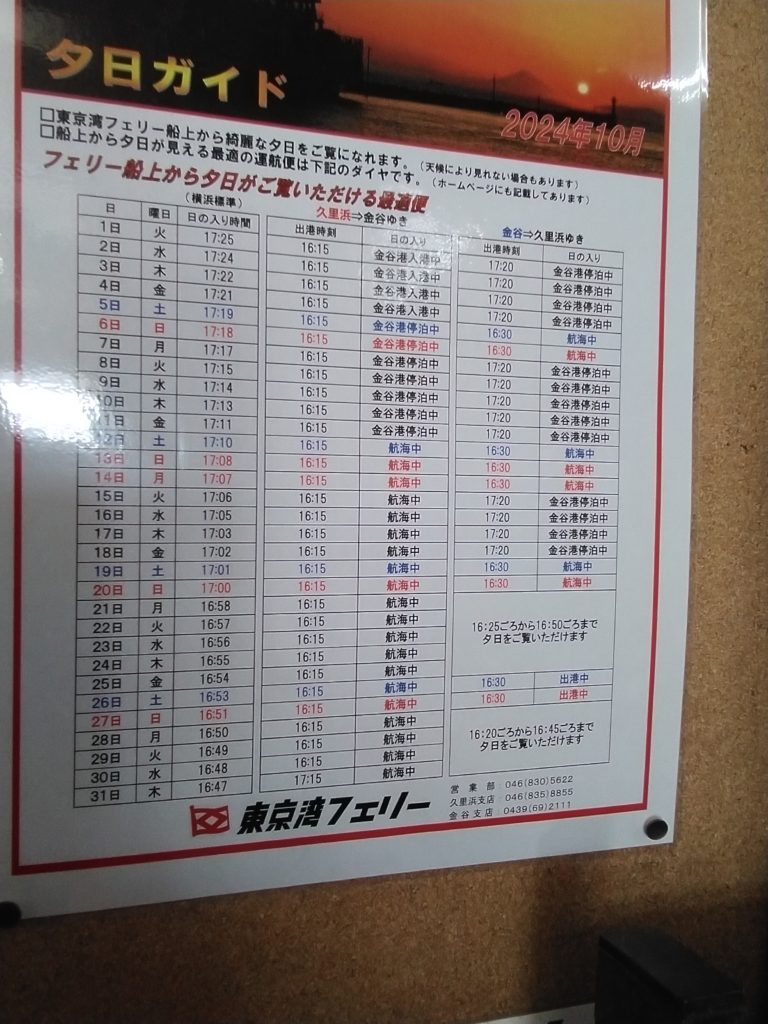 夕日ガイド
2024年10月
□東京湾フェリー船上から綺麗な夕日をご覧になれます。(天候により見れない場合もあります)
□船上から夕日が見える最適の運航便は下記のダイヤです。(ホームページにも記載してあります)
フェリー船上から夕日がご覧いただける最適便
(横浜標準) 久里浜⇒金谷ゆき 金谷⇒久里浜ゆき
日 曜日 日の入り時間 出港時刻 日の入り 出港時刻 日の入り
1日 火 17:25 16:15 金谷港入港中 17:20 金谷港停泊中
2日 水 17:24 16:15 金谷港入港中 17:20 金谷港停泊中
3日 木 17:22 16:15 金谷港入港中 17:20 金谷港停泊中
4日 金 17:21 16:15 金谷港入港中 17:20 金谷港停泊中
5日 土 17:19 16:15 金谷港停泊中 16:30 航海中
6日 日 17:18 16:15 金谷港停泊中 16:30 航海中
7日 月 17:17 16:15 金谷港停泊中 17:20 金谷港停泊中
8日 火 17:15 16:15 金谷港停泊中 17:20 金谷港停泊中
9日 水 17:14 16:15 金谷港停泊中 17:20 金谷港停泊中
10日 木 17:13 16:15 金谷港停泊中 17:20 金谷港停泊中
11日 金 17:11 16:15 金谷港停泊中 17:20 金谷港停泊中
12日 土 17:10 16:15 航海中 16:30 航海中
13日 日 17:08 16:15 航海中 16:30 航海中
14日 月 17:07 16:15 航海中 16:30 航海中
15日 火 17:06 16:15 航海中 17:20 金谷港停泊中
16日 水 17:05 16:15 航海中 17:20 金谷港停泊中
17日 木 17:03 16:15 航海中 17:20 金谷港停泊中
18日 金 17:02 16:15 航海中 17:20 金谷港停泊中
19日 土 17:01 16:15 航海中 16:30 航海中
20日 日 17:00 16:15 航海中 16:30 航海中
21日 月 16:58 16:15 航海中
22日 火 16:57 16:15 航海中 16:25ごろから16:50ごろまで
23日 水 16:56 16:15 航海中 夕日をご覧いただけます
24日 木 16:55 16:15 航海中
25日 金 16:54 16:15 航海中
26日 土 16:53 16:15 航海中 16:30 出港中
27日 日 16:51 16:15 航海中 16:30 出港中
28日 月 16:50 16:15 航海中
29日 火 16:49 16:15 航海中 16:20ごろから16:45ごろまで
30日 水 16:48 16:15 航海中 夕日をご覧いただけます
31日 木 16:47 17:15 航海中
東京湾フェリー
営業部:046(830)5622
久里浜支店:046(835)8855
金谷支店:0439(69)2111